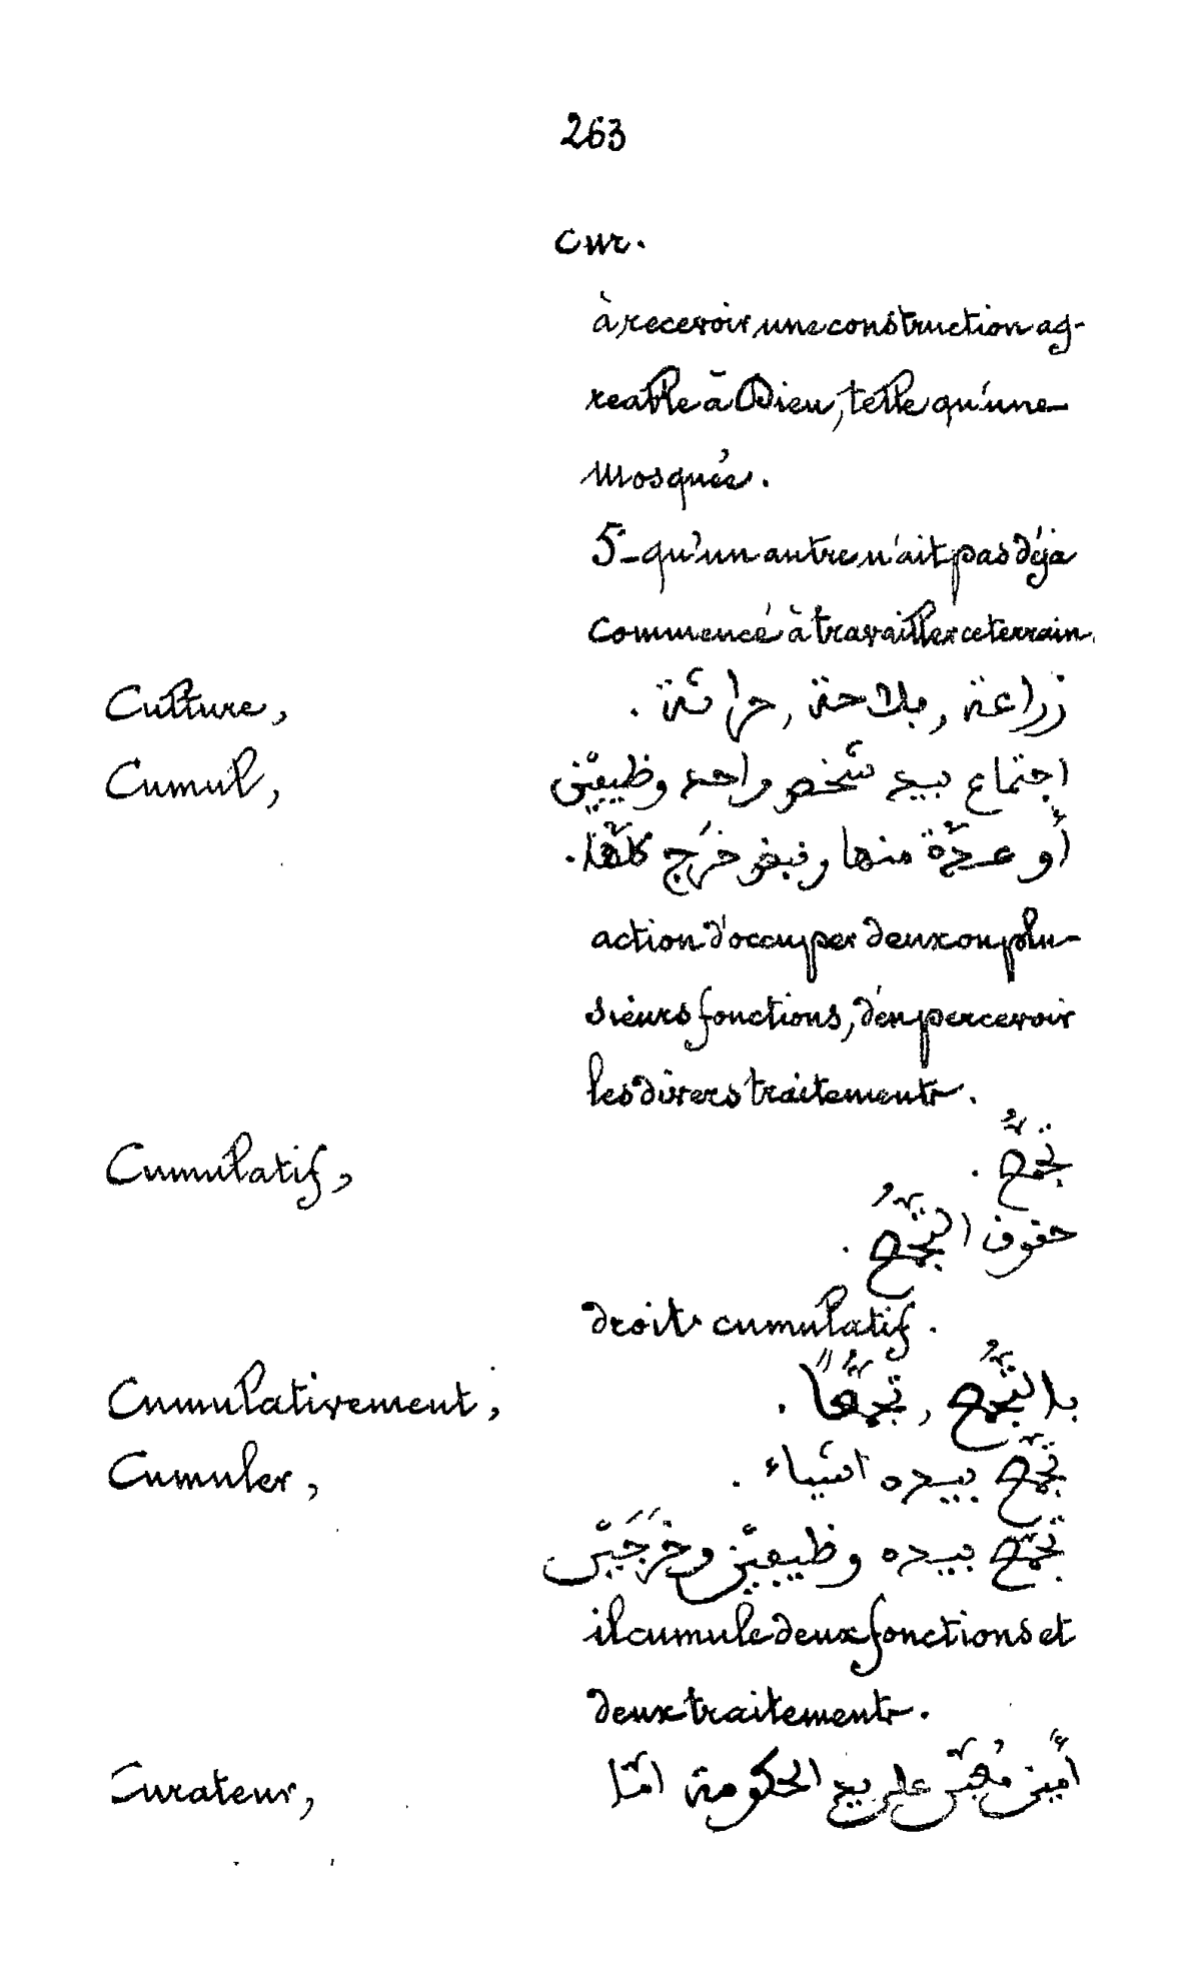 263
Cur.
à recevoir une construction ag-
réable à Dieu, telle qu'une
mosquée.
5°- qu'un autre n'ait pas déjà
commencé à travailler ce terrain.
Culture, زراعة, فلاحة, حراثة.
Cumul, اجتماع بيد شخص واحد وظيفتين
أو عدّة منها وقبض خَرْج كلّها.
action d'occuper deux ou plu-
sieurs fonctions, d'en percevoir
les divers traitements.
Cumulatif, تجمّعٌ.
حقوق التجمّعُ.
droits cumulatif.
Cumulativement, بالتجمّع, تجمّعاً.
Cumuler, تجمّع بيده اشياء.
تجمّع بيده وظيفتين وخَرَجَيْن
il cumule deux fonctions et
deux traitements.
Curateur, أمين مُعيّن على يد الحكومة امّا